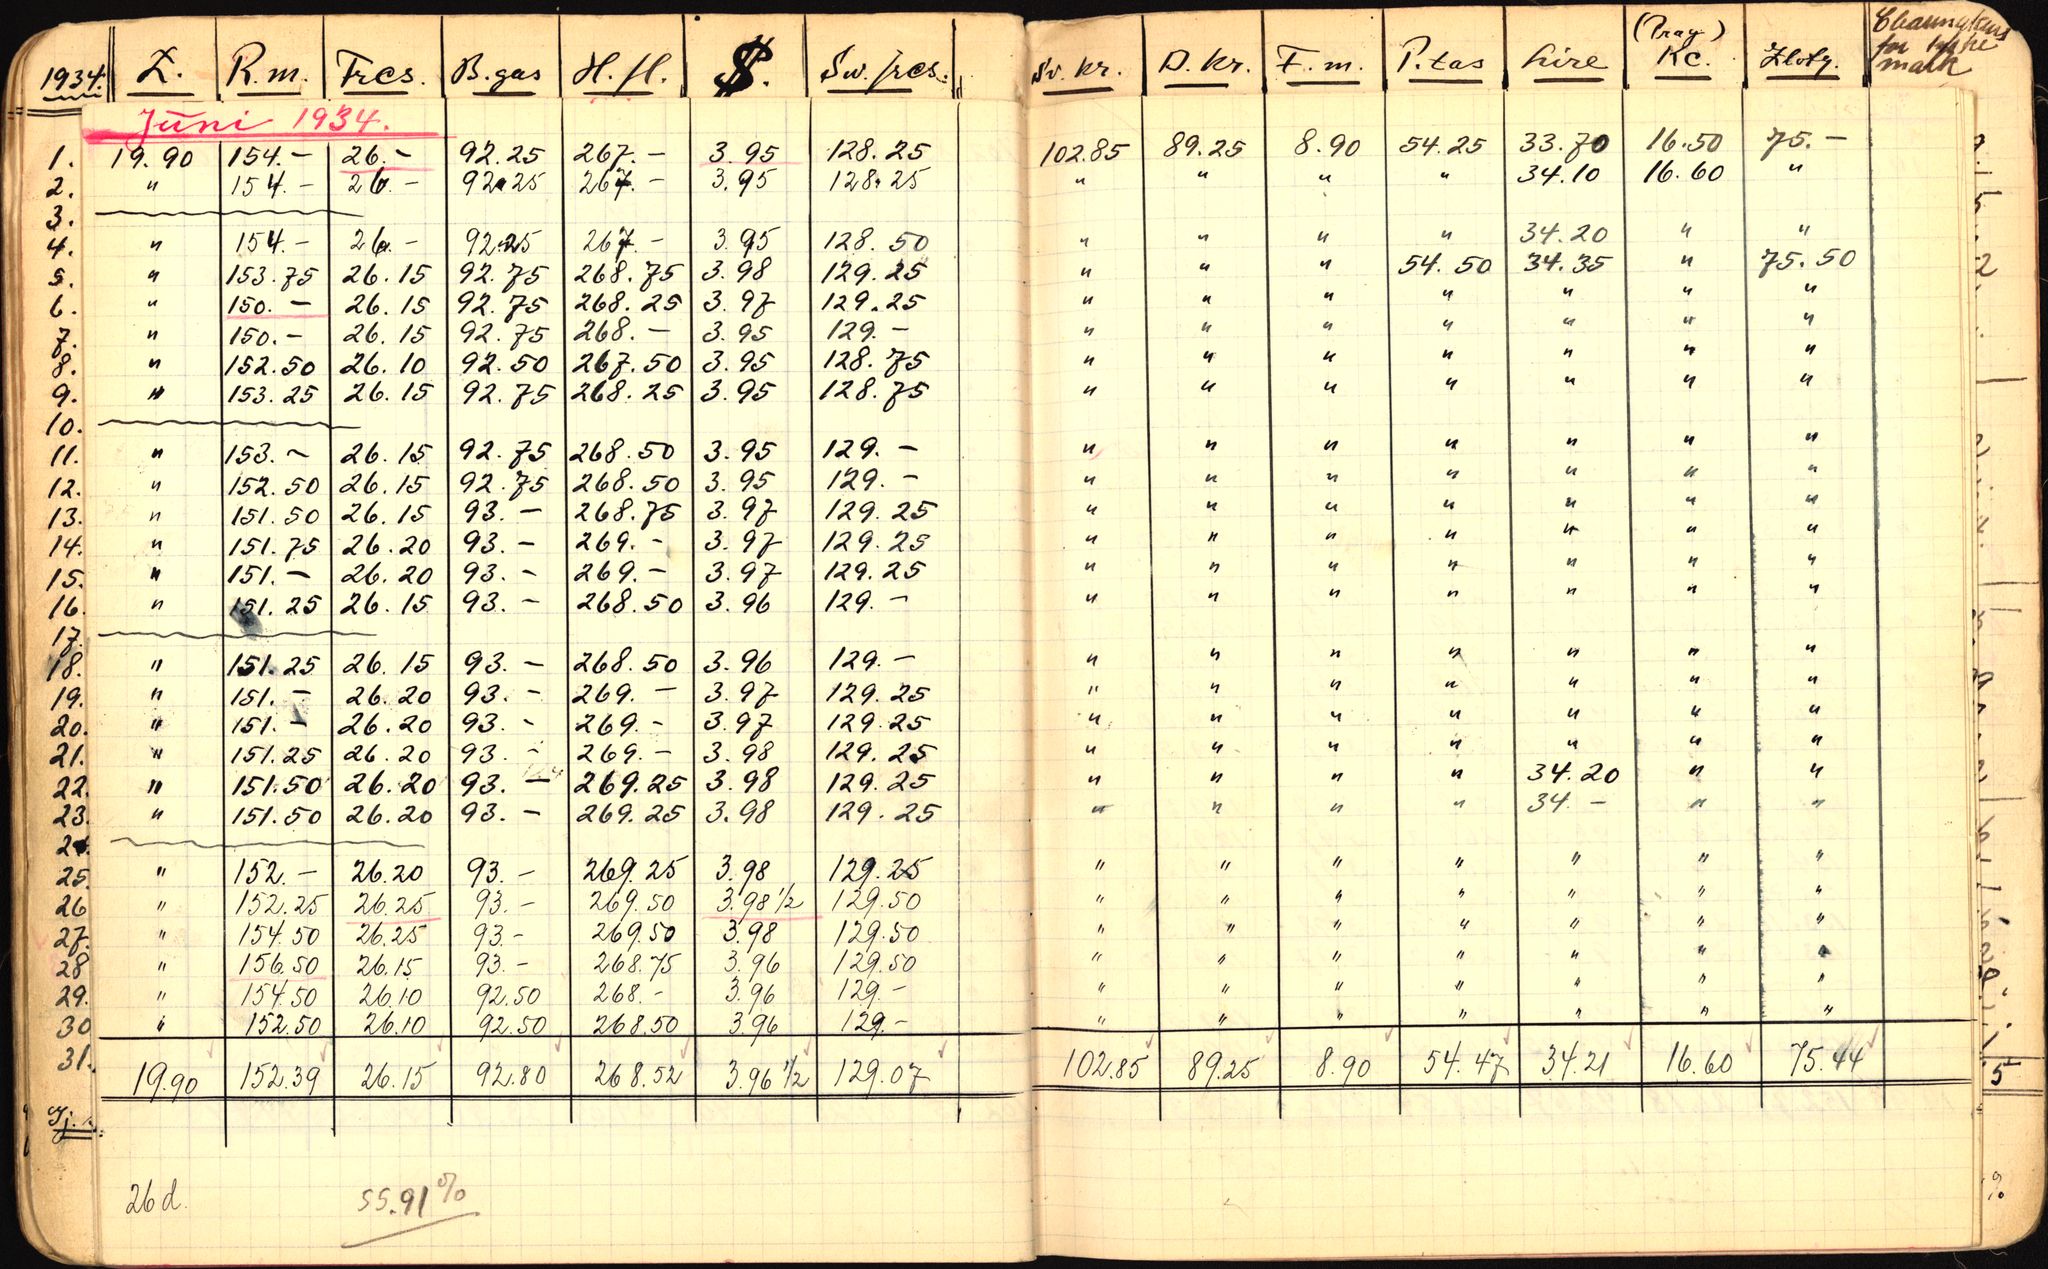 1934. £. R.m. Frcs. B.gas H.fl. $. Sw.frcs. Sv.kr. D.kr. F.m. P.tas Lire (Prag) Kc. Zloty.
for
mark
Juni 1934.
1. 19.90 154.- 26.- 92.25 267.- 3.95 128.25 102.85 89.25 8.90 54.25 33.70 16.50 75.-
2. " 154.- 26.- 92.25 267.- 3.95 128.25 " " " " 34.10 16.60 "
3.
4. " 154.- 26.- 92.25 267.- 3.95 128.50 " " " " 34.20 " "
5. " 153.75 26.15 92.75 268.75 3.98 129.25 " " " 54.50 34.35 " 75.50
6. " 150.- 26.15 92.75 268.25 3.97 129.25 " " " " " " "
7. " 150.- 26.15 92.75 268.- 3.95 129.- " " " " " " "
8. " 152.50 26.10 92.50 267.50 3.95 128.75 " " " " " " "
9. " 153.25 26.15 92.75 268.25 3.95 128.75 " " " " " " "
10.
11. " 153.- 26.15 92.75 268.50 3.95 129.- " " " " " " "
12. " 152.50 26.15 92.75 268.50 3.95 129.- " " " " " " "
13. " 151.50 26.15 93.- 268.75 3.97 129.25 " " " " " " "
14. " 151.75 26.20 93.- 269.- 3.97 129.25 " " " " " " "
15. " 151.- 26.20 93.- 269.- 3.97 129.25 " " " " " " "
16. " 151.25 26.15 93.- 268.50 3.96 129.- " " " " " " "
17.
18. " 151.25 26.15 93.- 268.50 3.96 129.- " " " " " " "
19. " 151.- 26.20 93.- 269.- 3.97 129.25 " " " " " " "
20. " 151.- 26.20 93.- 269.- 3.97 129.25 " " " " " " "
21. " 151.25 26.20 93.- 269.- 3.98 129.25 " " " " " " "
22. " 151.50 26.20 93.- 269.25 3.98 129.25 " " " " 34.20 " "
23. " 151.50 26.20 93.- 269.25 3.98 129.25 " " " " 34.- " "
24.
25. " 152.- 26.20 93.- 269.25 3.98 129.25 " " " " " " "
26 " 152.25 26.25 93.- 269.50 3.98 1/2 129.50 " " " " " " "
27. " 154.50 26.25 93.- 269.50 3.98 129.50 " " " " " " "
28 " 156.50 26.15 93.- 268.75 3.96 129.50 " " " " " " "
29. " 154.50 26.10 92.50 268.- 3.96 129.- " " " " " " "
30 " 152.50 26.10 92.50 268.50 3.96 129.- " " " " " " "
31. 19.90 152.39 26.15 92.80 268.52 3.96 1/2 129.07 102.85 89.25 8.90 54.47 34.21 16.60 75.44
26 d. 55.91%